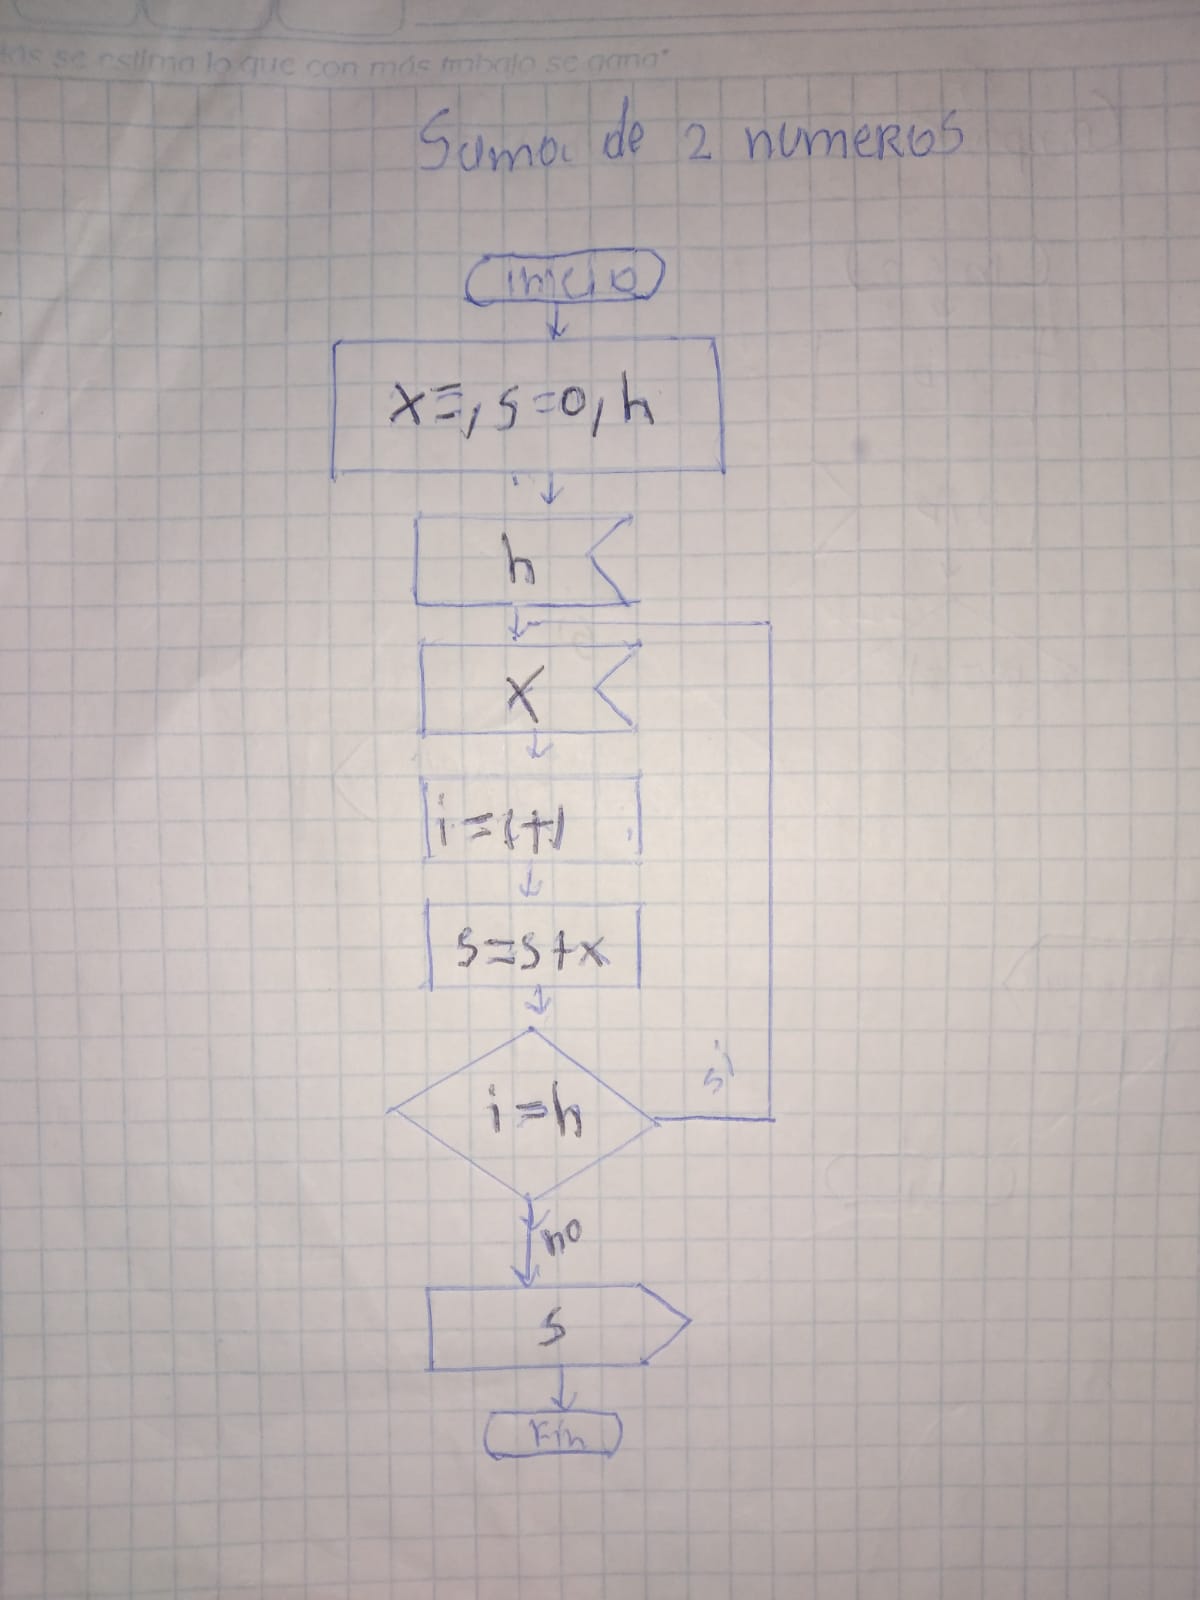 se estima lo que con más trabajo se gana"
Suma de 2 numeros
inicio
x=, s=0, h
h
X
i=1+1
s=s+x
i=h
si
no
s
Fin